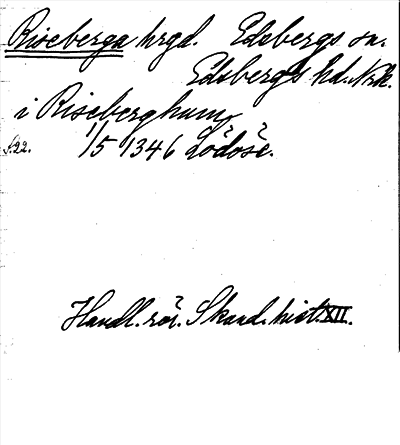 Riseberga hrgd. Edsbergs sn.
Edsbergs hd. Nrk.
i Riseberghum
S. 22. 1/5 1346 Lödöse.
Handl. rör. Skand. hist. XII.